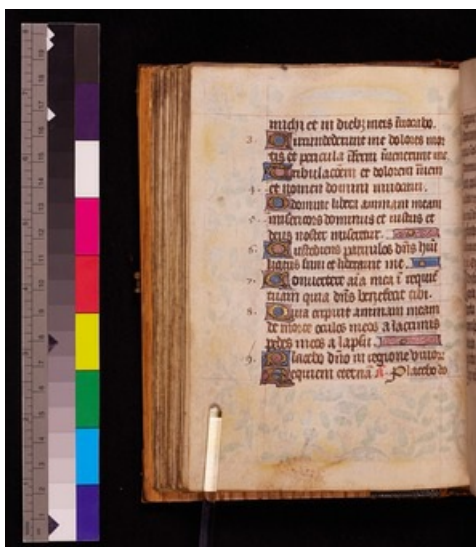 michi et in diebz meis invocabo.
3. Circumdederunt me dolores mor
tis et pericula inferni invenerunt me
Tribulacionem et dolorem inveni
4. et nomen domini invocavi.
O domine libera animam meam
5. misericors dominus et iustus et
deus noster miseretur.
6. Custodiens parvulos dns hui
liatus sum et liberavit me.
7. Convertere aia mea i requie
tuam quia dns benefecit tibi.
8. Quia eripuit animam meam
de morte oculos meos a lacrimis
pedes meos a lapsu.
9. Placebo dno in regione vivor
Requiem eterna A. Placebo do